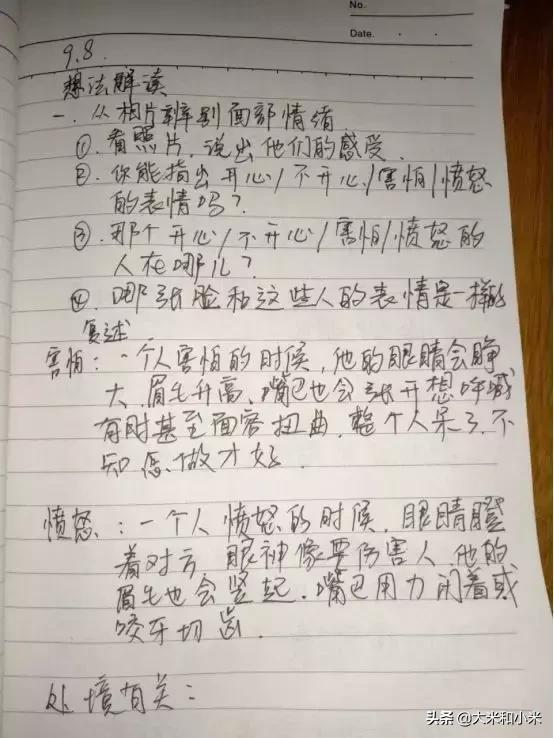 No.
Date.
9.8.
想法解读
一.从相片辨别面部情绪
①.看照片,说出他们的感受.
②.你能指出开心/不开心/害怕/愤怒
的表情吗?
③.那个开心/不开心/害怕/愤怒的
人在哪儿?
④.哪张脸和这些人的表情是一样的
复述
害怕:一个人害怕的时候,他的眼睛会睁
大,眉毛升高、嘴巴也会张开想呼喊
有时甚至面容扭曲,整个人呆了,不
知怎做才好.
愤怒:一个人愤怒的时候,眼睛瞪
着对方,眼神像要伤害人,他的
眉毛也会竖起,嘴巴用力闭着或
咬牙切齿.
处境有关:
头条@大米和小米